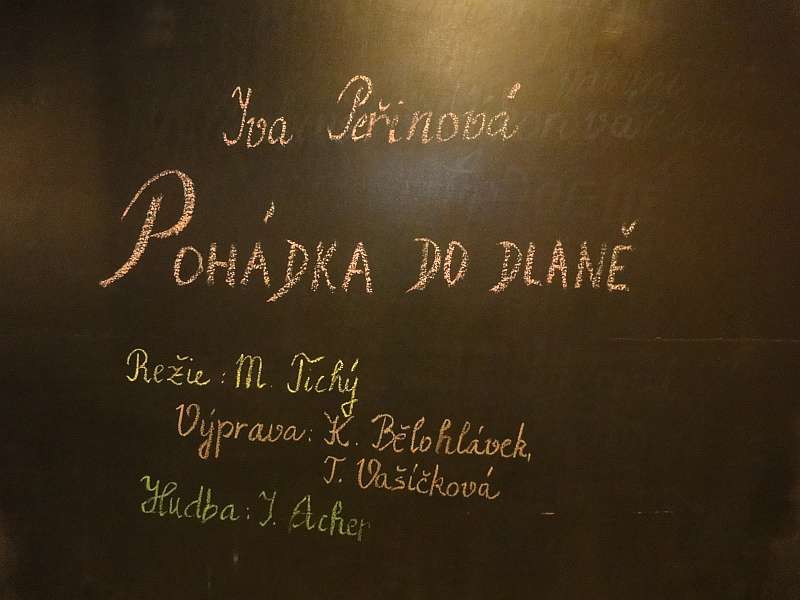 Iva Peřinová
POHÁDKA DO DLANĚ
Režie: M. Tichý
Výprava: K. Bělohlávek,
T. Vašíčková
Hudba: I. Acher